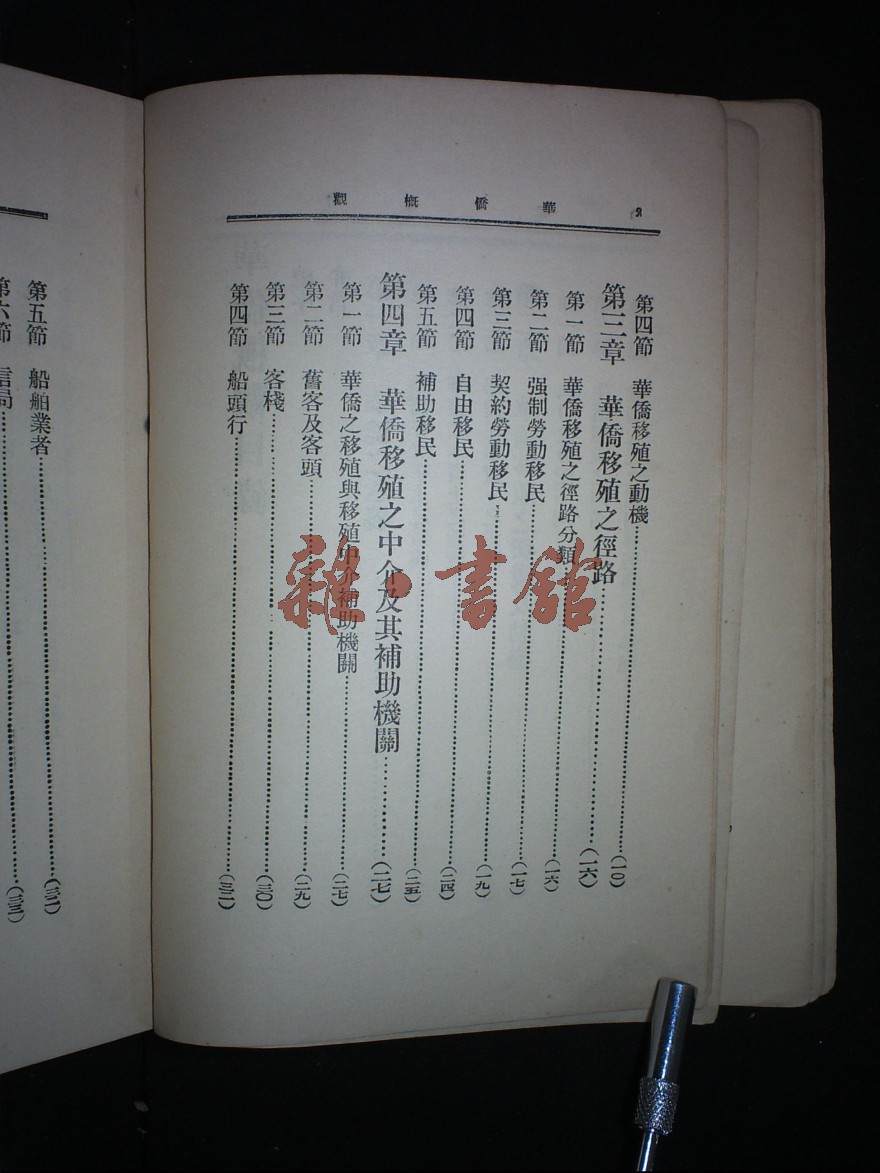 華僑概觀 2
第四節 華僑移殖之動機……(一〇)
第三章 華僑移殖之徑路……(一六)
第一節 華僑移殖之徑路分類……(一六)
第二節 强制勞動移民……(一七)
第三節 契約勞動移民……(一九)
第四節 自由移民……(二四)
第五節 補助移民……(二五)
第四章 華僑移殖之中介及其補助機關……(二七)
第一節 華僑之移殖與移殖中介補助機關……(二七)
第二節 舊客及客頭……(二九)
第三節 客棧……(三〇)
第四節 船頭行……(三二)
第五節 船舶業者……(三二)
第六節 信局……(三三)
雜·書館